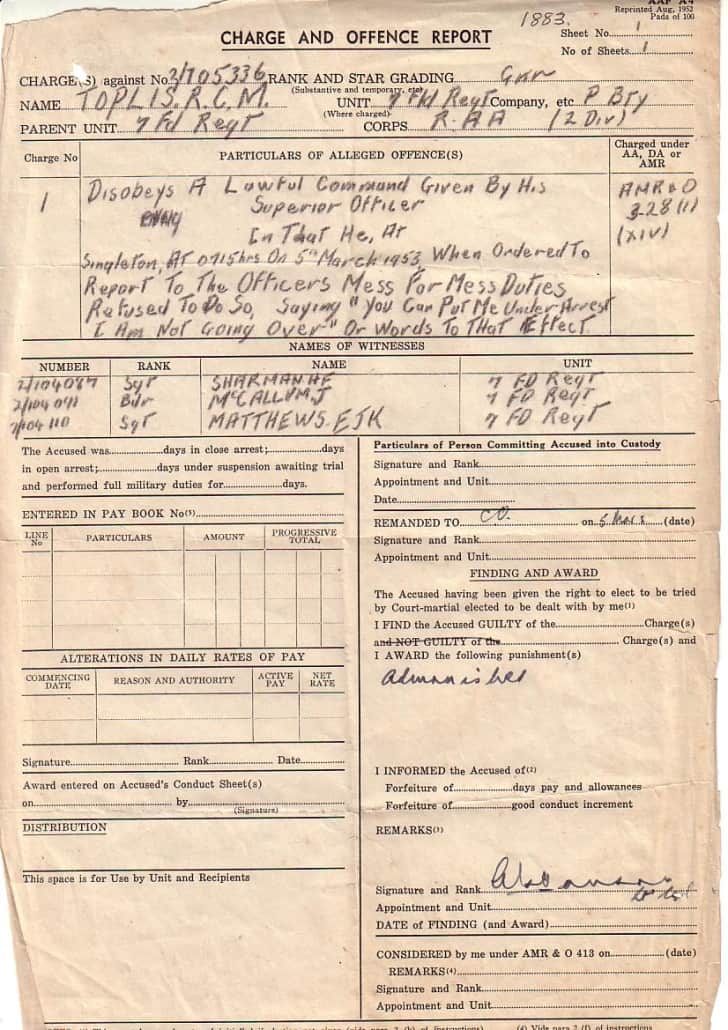 AAF A4
Reprinted Aug, 1952
Pads of 100
1883.
Sheet No. 1
No of Sheets 1
CHARGE AND OFFENCE REPORT
CHARGE(S) against No. 2/705336 RANK AND STAR GRADING Gnr
(Substantive and temporary, etc)
NAME TOPLIS. R. C. M. UNIT 7 Fd Regt Company, etc P Bty
(Where charged)
PARENT UNIT 7 Fd Regt CORPS R.A.A (2 Div)
Charge No
PARTICULARS OF ALLEGED OFFENCE(S)
Charged under
AA, DA or
AMR
1
Disobeys A Lawful Command Given By His
Superior Officer
In That He, At
Singleton, At 0715hrs On 5th March 1953, When Ordered To
Report To The Officers Mess For Mess Duties
Refused To Do So, Saying "You Can Put Me Under Arrest
I Am Not Going Over" Or Words To That Effect.
AMR & O
3-28 (1)
(XIV)
NAMES OF WITNESSES
NUMBER RANK NAME UNIT
2/104087 Sgt SHARMAN HF 7 FD Regt
2/104091 Bdr McCALLUM. J 7 FD Regt
2/104110 Sgt MATTHEWS. EJK 7 FD Regt
The Accused was days in close arrest; days
in open arrest; days under suspension awaiting trial
and performed full military duties for days.
ENTERED IN PAY BOOK No(5)
LINE No PARTICULARS AMOUNT PROGRESSIVE TOTAL
ALTERATIONS IN DAILY RATES OF PAY
COMMENCING DATE REASON AND AUTHORITY ACTIVE PAY NET RATE
Signature Rank Date
Award entered on Accused's Conduct Sheet(s)
on by
(Signature)
DISTRIBUTION
This space is for Use by Unit and Recipients
Particulars of Person Committing Accused into Custody
Signature and Rank
Appointment and Unit
Date
REMANDED TO CO. on 5 Mar (date)
Signature and Rank
Appointment and Unit
FINDING AND AWARD
The Accused having been given the right to elect to be tried
by Court-martial elected to be dealt with by me(1)
I FIND the Accused GUILTY of the Charge(s)
and NOT GUILTY of the Charge(s) and
I AWARD the following punishment(s)
Admonished
I INFORMED the Accused of(2)
Forfeiture of days pay and allowances
Forfeiture of good conduct increment
REMARKS(3)
Signature and Rank
Appointment and Unit
DATE OF FINDING (and Award)
CONSIDERED by me under AMR & O 413 on (date)
REMARKS(4)
Signature and Rank
Appointment and Unit